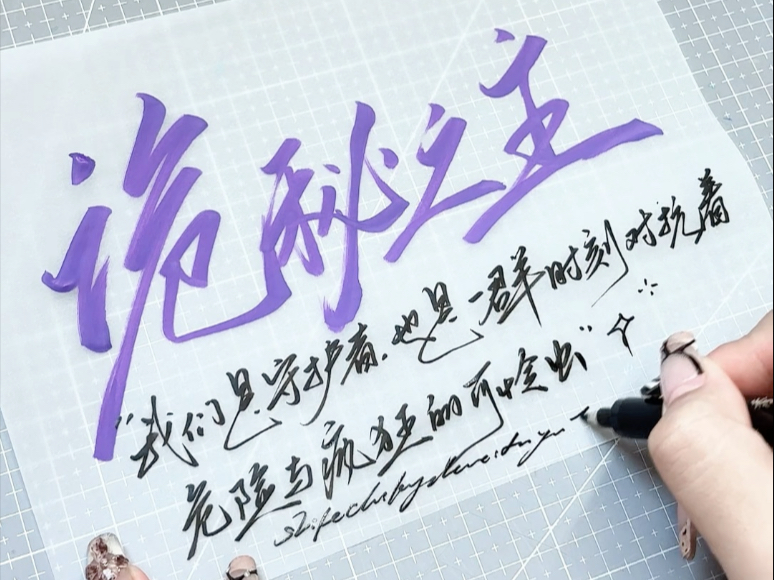 诡秘之主
"我们是守护者,也是一群时刻对抗着
危险与疯狂的可怜虫"